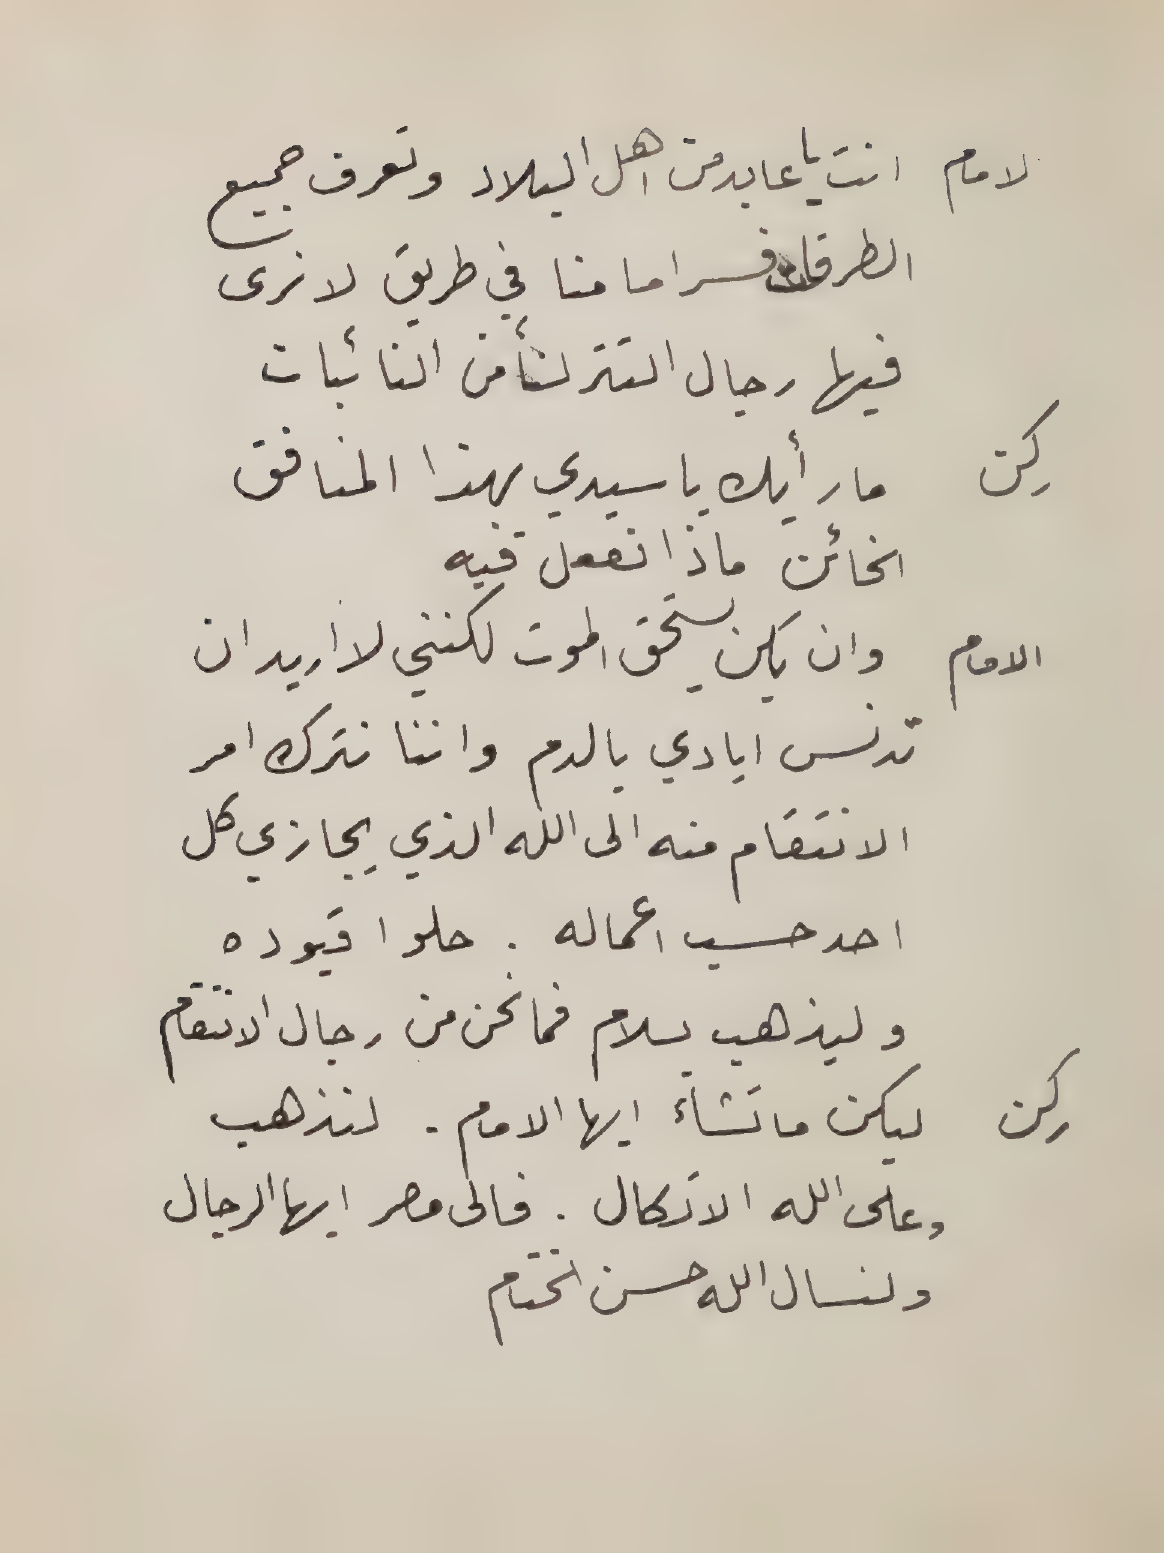 لامام انت يا عابد من اهل البلاد وتعرف جميع
الطرقات فسر امامنا في طريق لا نرى
فيها رجال التتر لنأمن النائبات
ركن ما رأيك يا سيدي بهذا المنافق
الخائن ماذا نفعل فيه
الامام وان يكن يستحق الموت لكنني لا اريد ان
تدنس ايادي بالدم واننا نترك امر
الانتقام منه الى الله الذي يجازي كل
احد حسب اعماله . حلوا قيوده
وليذهب بسلام فما نحن من رجال الانتقام
ركن ليكن ما تشاء ايها الامام . لنذهب
وعلى الله الاتكال . فالى مصر ايها الرجال
ولنسال الله حسن الختام